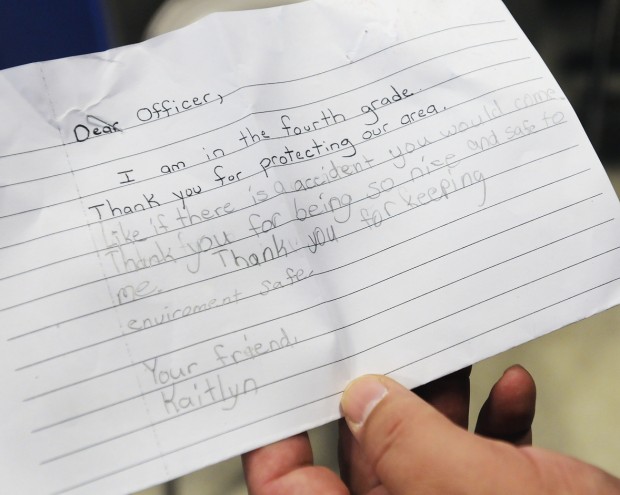 Dear Officer,
I am in the fourth grade.
Thank you for protecting our area.
Like if there is a accident you would come
Thank you for being so nice and safe to
me. Thank you for keeping
enviroment safe.
Your friend,
Kaitlyn